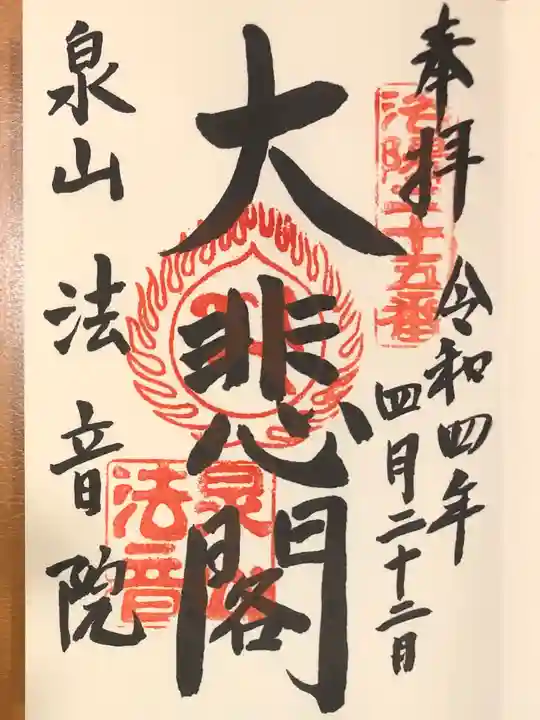 奉拝
令和四年
四月二十二日
洛陽二十五番
大悲閣
泉山 法音院
法音